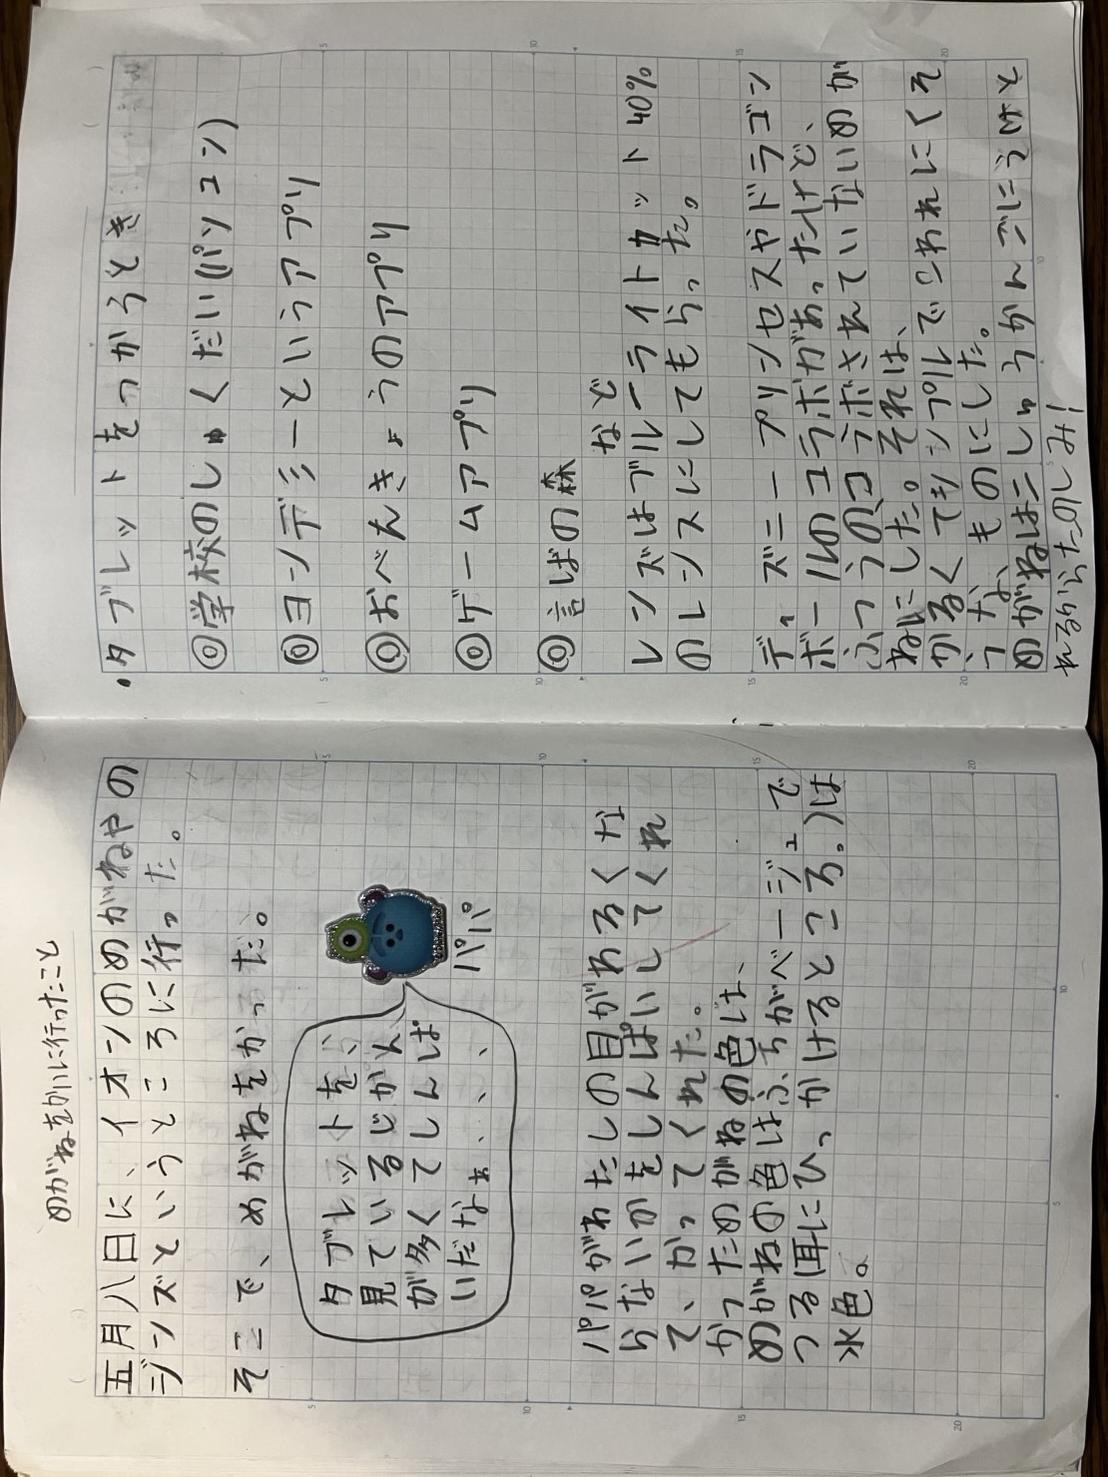 めがねをかいに行ったこと
五月八日に、イオンのめがねやの
ジンズというところに行った。
そこで、めがねをかった。
タブレットを、
見ているじかん
が多くてしんぱ
いだなぁ、、、、
パパ
パパがわたしの目がわるくな
らないかをしんぱいしてくれ
て、かってくれた。
かっためがねの色は、
めがねの色はふちがベージュで
つる(耳にひっかけるところ。)は
水色。
・タブレットをつかうとき
◎学校のしゅくだい(パソコン)
◎ヨンデミーというアプリ
◎おべんきょうのアプリ
◎ゲームアプリ
◎言ばの森
など
レンズはブルーライトカット40%
のレンズにしてもらった。
ディズニープリンセスやドラゴン
ボールのコラボがあったけど、
ふつうの、コラボされていないめが
ねにした。それは、
かるくてもシンプルでこわれにくそ
うな、ものにした。
めがねは二しゅうかんごにうけと
れるからたのしみ!